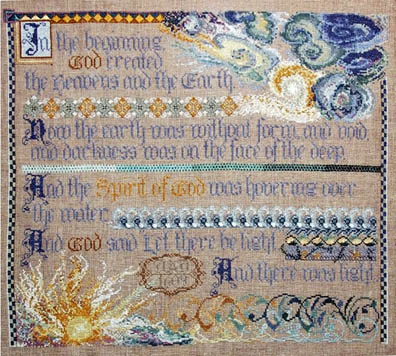 In the beginning
God created
the Heavens and the Earth
Now the earth was without form, and void
and darkness was on the face of the deep
And the Spirit of God was hovering over
the water.
And God said Let there be light
And there was light.